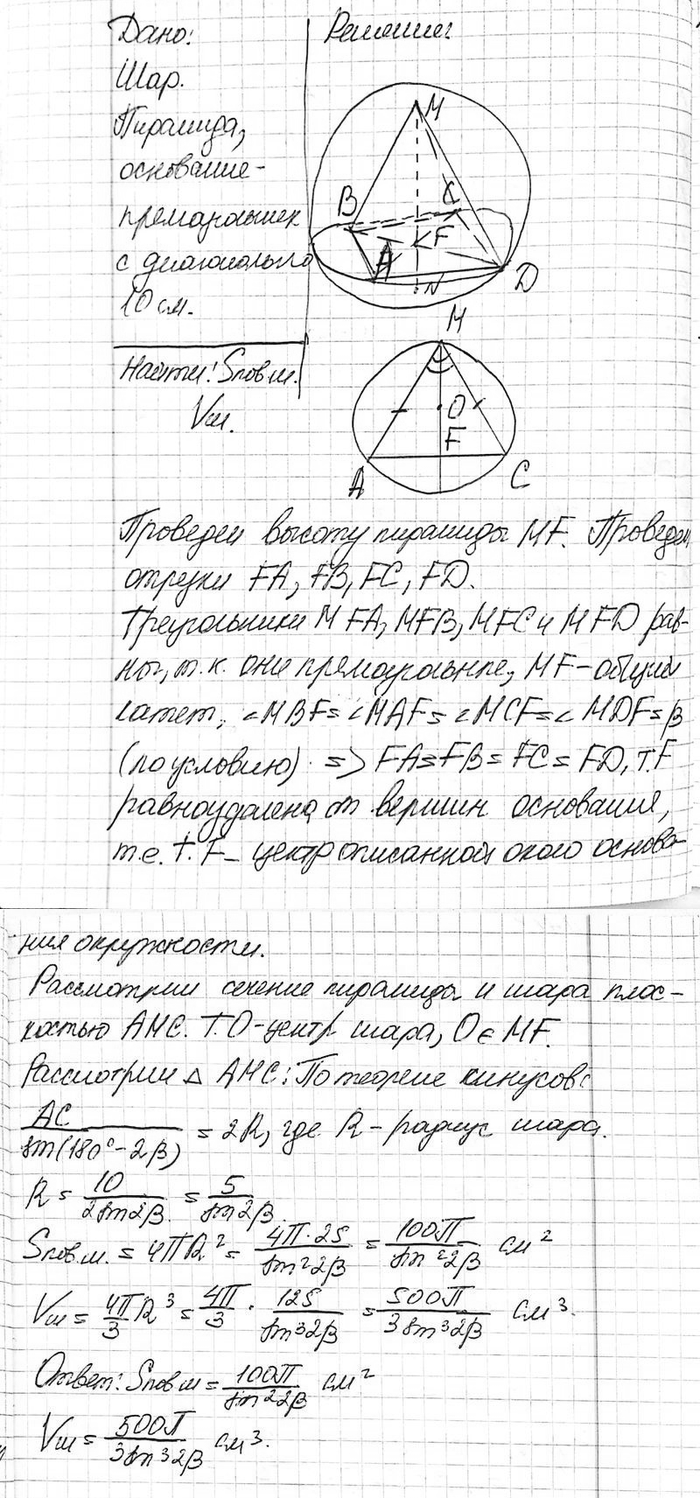 Дано:
Решение:
Шар.
Пирамида,
основание-
прямоугольник
с диагональю
10 см.
Найти: Sпов ш.
Vш.
M
B
C
F
A
N
D
M
O
F
A
C
Проведем высоту пирамиды MF. Проведем
отрезки FA, FB, FC, FD.
Треугольники MFA, MFB, MFC и MFD рав-
ны, т.к. они прямоугольные, MF-общий
катет, ∠MBF=∠MAF=∠MCF=∠MDF=β
(по условию) => FA=FB=FC=FD, т.F
равноудалена от вершин основания,
т.е. т.F- центр описанной около основа-
ния окружности.
Рассмотрим сечение пирамиды и шара плос-
костью AMC. Т.O-центр шара, O∈MF.
Рассмотрим △ AMC: По теореме синусов:
AC/sin(180°-2β) = 2R, где R-радиус шара.
R = 10/2sin2β = 5/sin2β
Sпов.ш. = 4πR² = 4π·25/sin²2β = 100π/sin²2β см²
Vш = 4π/3 R³ = 4π/3 · 125/sin³2β = 500π/3sin³2β см³.
Ответ: Sпов ш = 100π/sin²2β см²
Vш = 500π/3sin³2β см³.